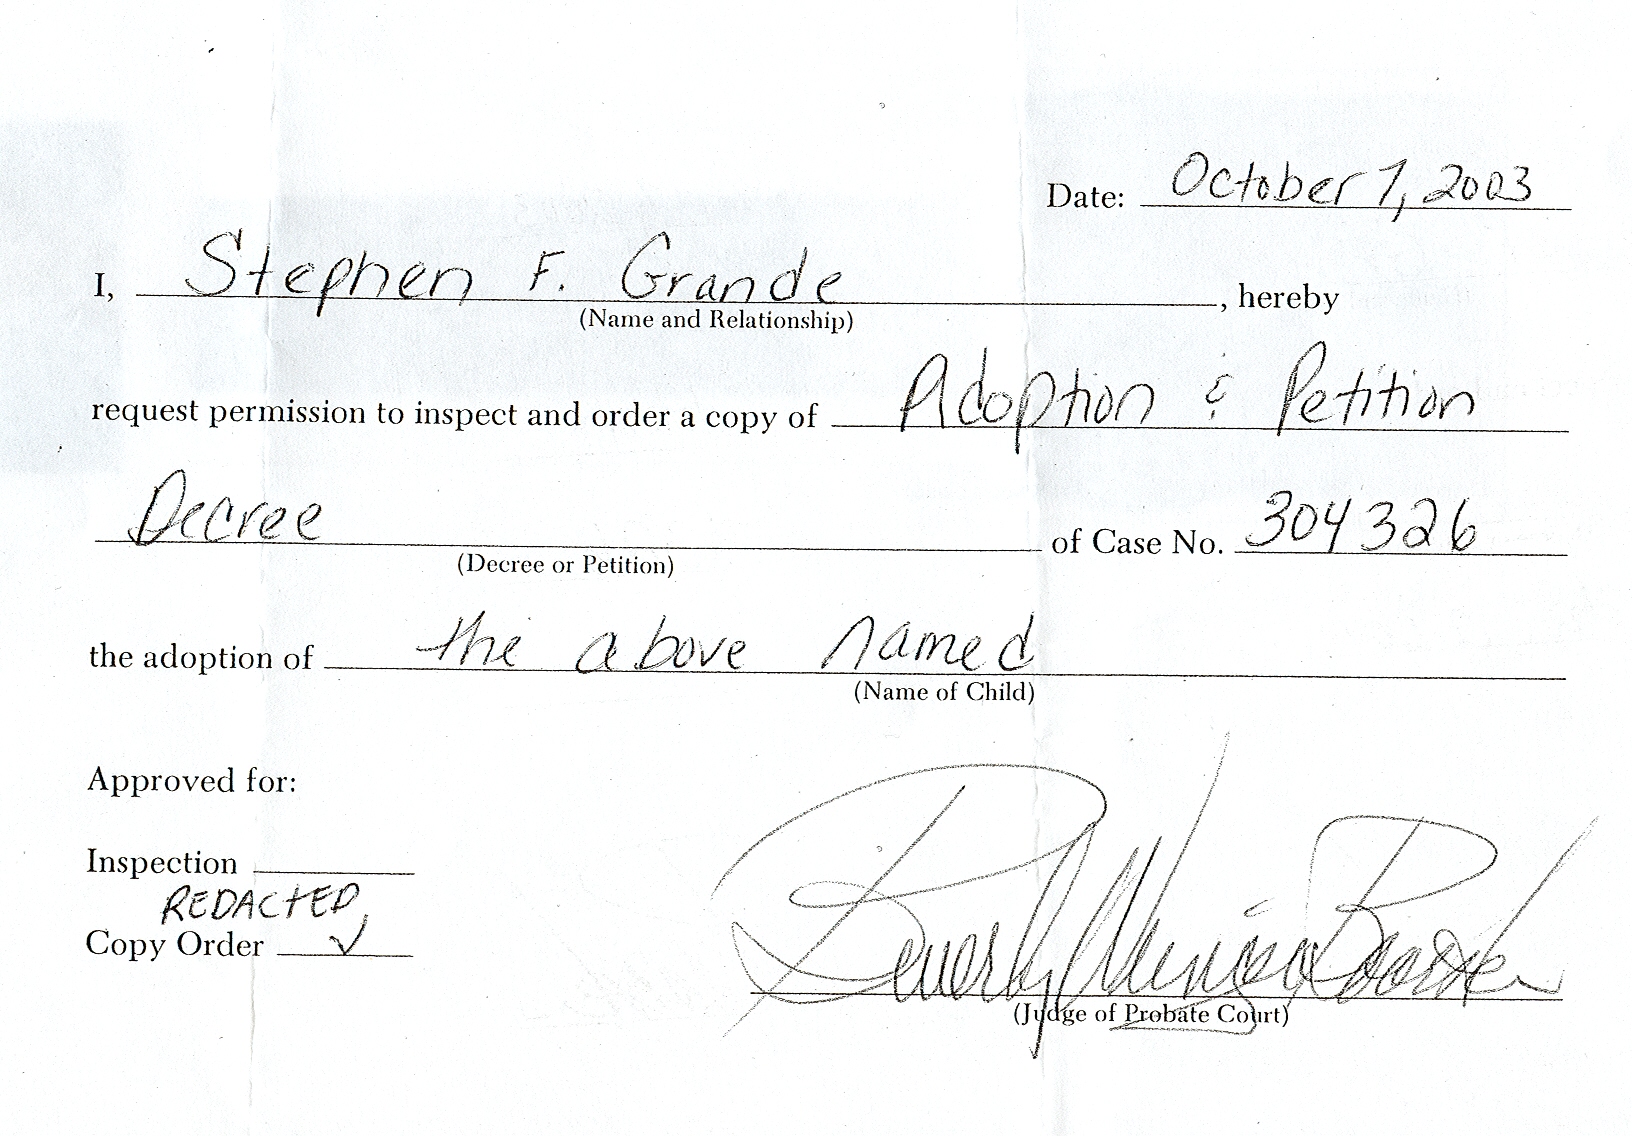 Date: October 7, 2003
I, Stephen F. Grande, hereby
(Name and Relationship)
request permission to inspect and order a copy of Adoption & Petition
Decree of Case No. 304326
(Decree or Petition)
the adoption of the above named
(Name of Child)
Approved for:
Inspection
REDACTED
Copy Order ✓
Beverly
(Judge of Probate Court)